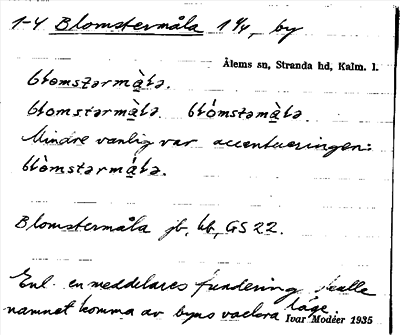 1-4 Blomstermåla 1 1/4, by
Ålems sn, Stranda hd, Kalm. l.
blomstərmàla.
blomstərmàla. blómstəmàla.
Mindre vanlig var accentueringen:
blòmstərmála.
Blomstermåla jb, kb, GS 22.
Enl. en meddelares fundering skulle
namnet komma av byns vackra läge.
Ivar Modéer 1935